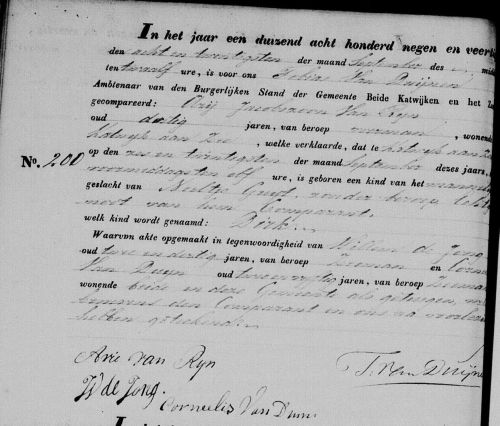 In het jaar een duizend acht honderd negen en veer
den acht en twintigsten der maand September des
ten twaalf ure, is voor ons Tobias Van Duijnen
Ambtenaar van den Burgerlijken Stand der Gemeente Beide Katwijken en het Z
gecompareerd: Arij van Ryn
oud dertig jaren, van beroep zeeman, wonende
Katwijk aan Zee, welke verklaarde, dat te Katwijk aan Zee
op den zes en twintigsten der maand September dezes jaars,
voormiddags elf ure, is geboren een kind van het mannelijk
No. 200
geslacht van Neeltje zonder beroep
van hem Comparant.
welk kind wordt genaamd: Dirk
Waarvan akte opgemaakt in tegenwoordigheid van Willem de Jong
oud twee en dertig jaren, van beroep Zeeman en Corne
Van Duyn oud twee en jaren, van beroep Zeeman
wonende beide in deze Gemeente als getuigen,
den Comparant en ons na voorlezing
hebben geteekend.
Arie van Ryn
T. Van Duijne
W de Jong.
Cornelis Van Duin